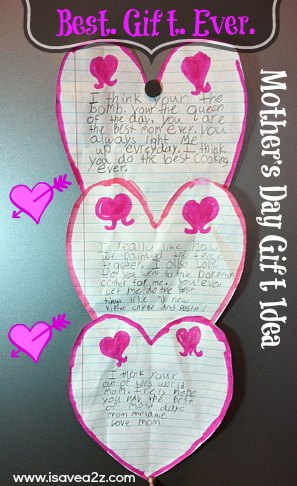 Best. Gift. Ever.
I think your the
bomb. your the queen
of the day. you are
the best mom ever. you
always light me
up evreyday. I think
you do the best cooking
ever.
Mother's Day Gift Idea
I really like how
we painted the fence
I olso love
that you went to the
center for me. you even
let me do the best
things like my new
I think your
out of this world
mom. I realy hope
you have the best
of most days
From melanie
Love mom
www.isavea2z.com